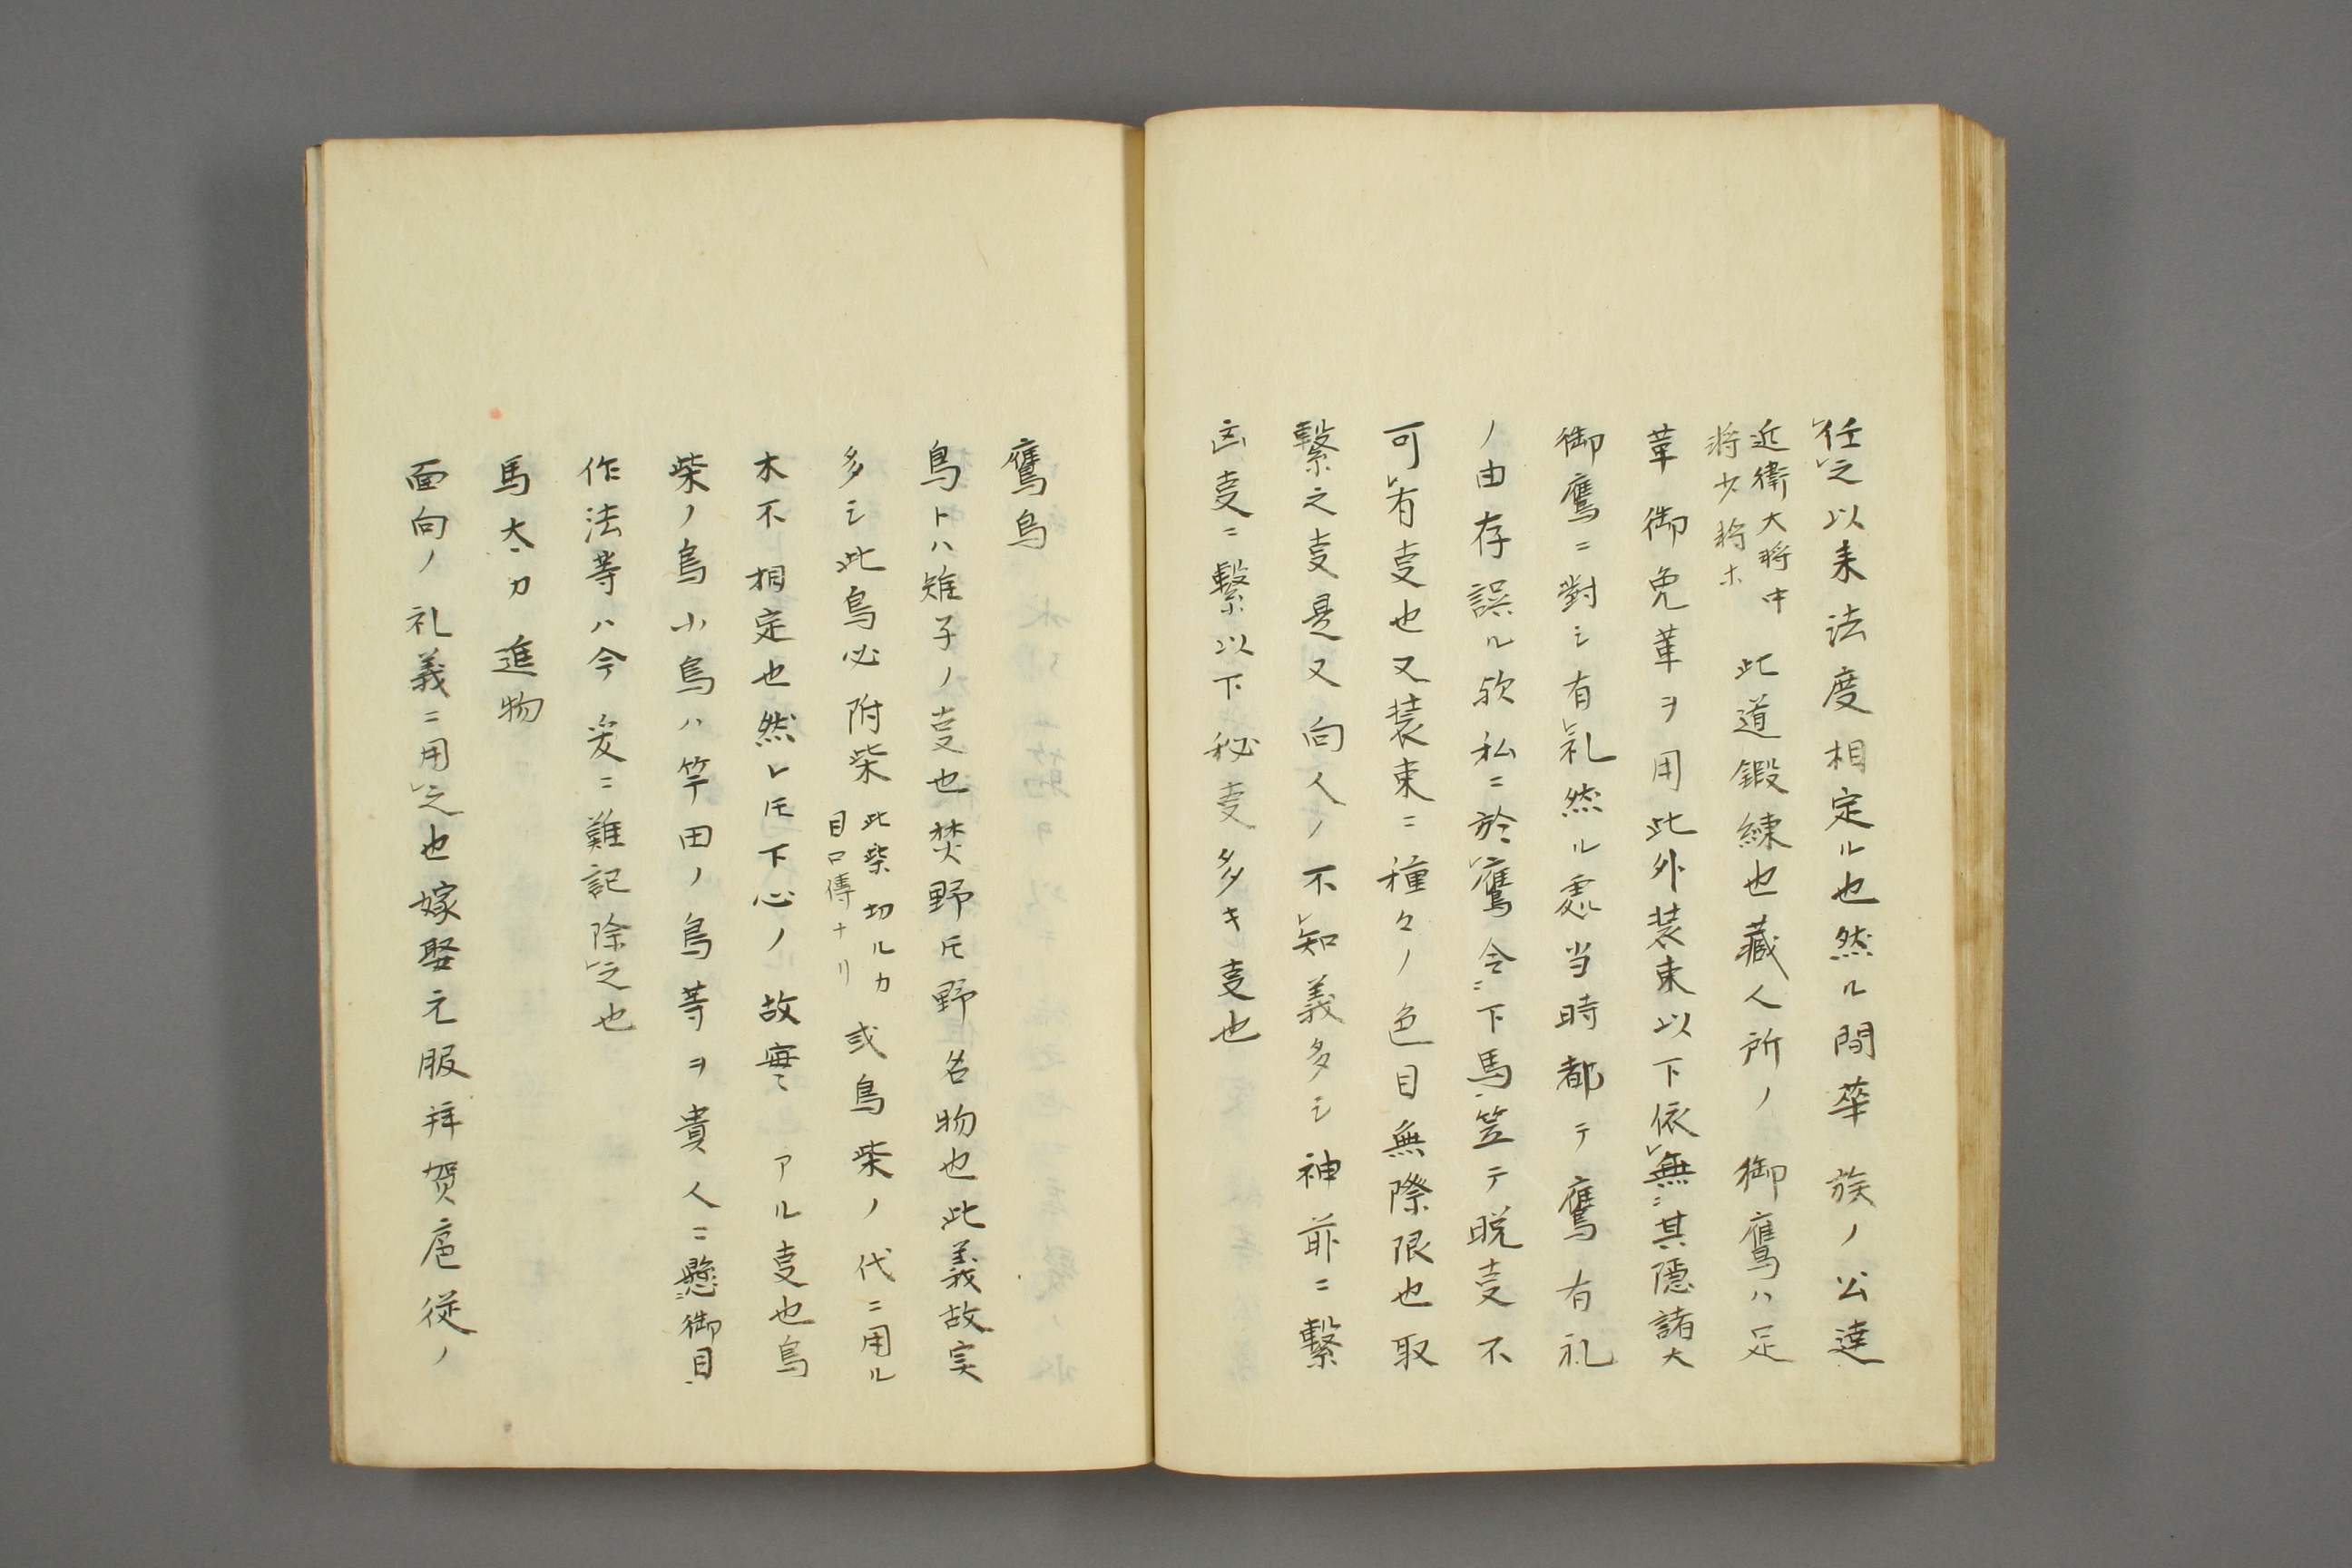 任レ之以来法度相定ル也然ル間華族ノ公達
近衛大将中
将少将ホ
此道鍛練也蔵人所ノ御鷹ハ足
革御免革ヲ用此外装束以下依レ無ニ其隠諸大
御鷹ニ對シ有レ礼然ル處当時都テ鷹有礼
ノ由存誤ル欤私ニ於レ鷹令ニ下馬笠テ脱㕝不
可レ有㕝也又装束ニ種々ノ色目無際限也取
繋之㕝是又向人ノ不レ知義多シ神前ニ繋
凶㕝ニ繋以下秘㕝多キ㕝也
鷹鳥
鳥トハ雉子ノ㕝也焚野𪜈野名物也此義故実
多シ此鳥必附柴
此柴切ルカ
目口傳ナリ
或鳥柴ノ代ニ用ル
木不相定也然レ𪜈下心ノ故實アル㕝也鳥
柴ノ鳥小鳥ハ竿田ノ鳥等ヲ貴人ニ懸ニ御目
作法等ハ今爰ニ難記除レ之也
馬太刀進物
面向ノ礼義ニ用レ之也嫁娶元服拝賀扈従ノ